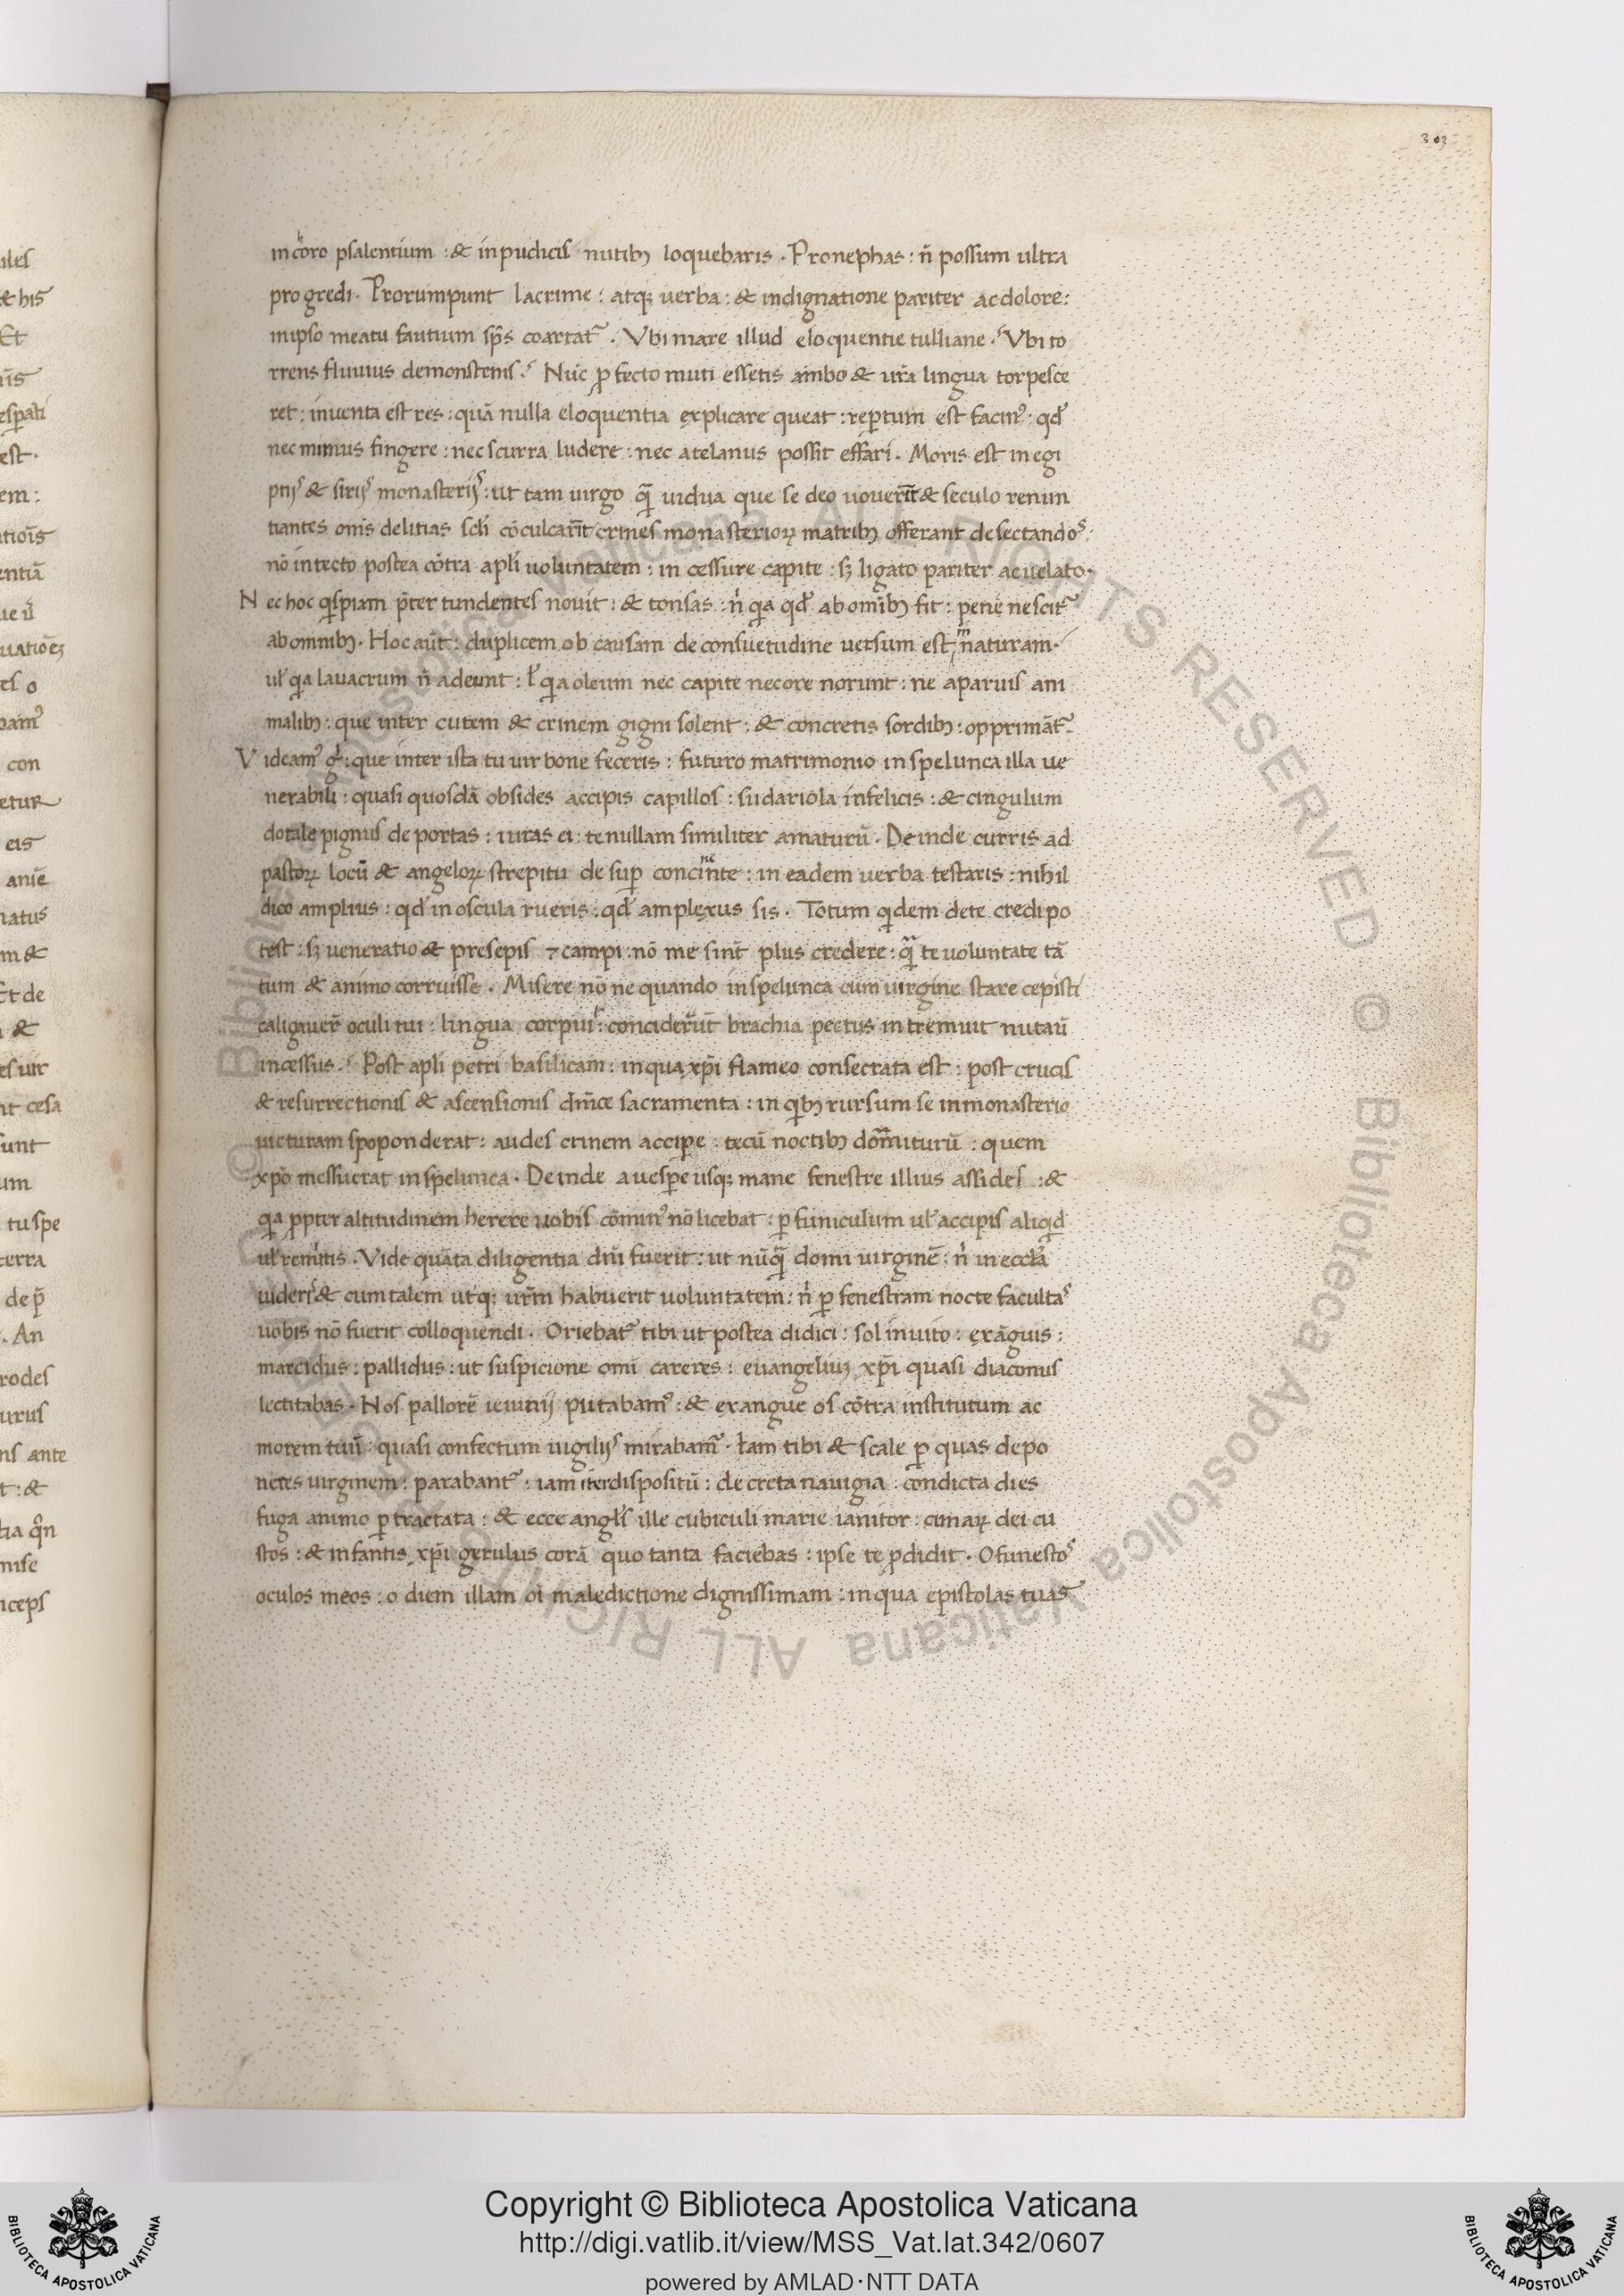 303
in choro psalentium : & inpudicis nutibꝫ loquebaris . Pronephas : n̄ possum ultra
progredi . Prorumpunt lacrime : atqꝫ uerba : & indignatione pariter ac dolore :
inipso meatu fautium sp̄s coartat᷑ . Vbi mare illud eloquentie tulliane ? Vbi to
rrens fluuius demonstenis ? Nūc ꝓfecto muti essetis ambo & ur̄a lingua torpesce
ret : inuenta est res : quā nulla eloquentia explicare queat : reꝑtum est facin᷒ . qd̓
nec mimus fingere : nec scurra ludere : nec atelanus possit effari . Moris est in egi
ptijs & sirijs monasterijs : ut tam uirgo q̄ uidua que se deo uouerīt & seculo renun
tiantes om̄s delitias scl̄i cōculcarīt crines monasterioꝝ matribꝫ offerant desectandos .
nō intecto postea cōtra apl̄i uoluntatem : in cessure capite : sꝫ ligato pariter ac uelato .
Nec hoc qͥspiam p̄ter tundentes nouit : & tonsas : nͥ qͥa qd̓ ab omībꝫ fit : pene nescit᷑
ab omnibꝫ . Hoc aūt : duplicem ob causam de consuetudine uersum est in naturam .
ul̓ qͥa lauacrum n̄ adeunt : l̓ qͥa oleum nec capite nec ore norunt : ne a paruis ani
malibꝫ : que inter cutem & crinem gigni solent : & concretis sordibꝫ : opprimāt᷑ .
Videam᷒ gͦ : que inter ista tu uir bone feceris : futuro matrimonio in spelunca illa ue
nerabili : quasi quosdā obsides accipis capillos : sudariola infelicis : & cingulum
dotale pignus deportas : iuras ei : te nullam similiter amaturū . Deinde curris ad
pastoꝝ locū & angeloꝝ strepitu desuꝑ concinēnte : in eadem uerba testaris : nihil
dico amplius : qd̓ in oscula rueris : qd̓ amplexus sis . Totum qͥdem de te credi po
test : sꝫ ueneratio & presepis ⁊ campi : nō me sinīt plus credere : qᷓ te uoluntate tā
tum & animo corruisse . Misere nōne quando in spelunca cum uirgine stare cepisti
caligauer̄ oculi tui : lingua corpuit : conciderūt brachia pectus intremuit nutaū
incessus ? Post apl̄i petri basilicam : in qua xp̄i flameo consecrata est : post crucis
& resurrectionis & ascensionis dn̄ice sacramenta : in qͥbꝫ rursum se in monasterio
uicturam spoponderat : audes crinem accipe : tecū noctibꝫ dormiturū : quem
xp̄o messuerat in spelunca . Deinde a uesꝑe usqꝫ mane fenestre illius assides : &
qͥa ꝓpter altitudinem herere uobis cōmin᷒ nō licebat : ꝑ funiculum ul̓ accipis aliqͥd
ul̓ remittis . Vide quāta diligentia dn̄i fuerit : ut nūqᷓ domi uirginē : nͥ in eccl̄a
uideris & cum talem utͥqꝫ ur̄m habuerit uoluntatem : nͥ ꝑ fenestram nocte facultas
uobis nō fuerit colloquendi . Oriebat᷑ tibi ut postea didici : sol inuito : exāguis :
marcidus : pallidus : ut suspicione om̄i careres : euangeliuꝫ xp̄i quasi diaconus
lectitabas . Nos pallorē ieiunij putabam᷒ : & exangue os cōtra institutum ac
morem tuū : quasi confectum uigilijs mirabam᷑ . Iam tibi & scale ꝑ quas depo
neres uirginem : parabant᷑ . iam iter dispositū : decreta nauigia : condicta dies
fuga animo ꝑtractata : & ecce angl̄s ille cubiculi marie ianitor : cunaꝝ dei cu
stos : & infantis xp̄i gerulus corā quo tanta faciebas : ipse te ꝓdidit . O funestos
oculos meos : o diem illam oī maledictione dignissimam : in qua epistolas tuas
Copyright © Biblioteca Apostolica Vaticana
http://digi.vatlib.it/view/MSS_Vat.lat.342/0607
powered by AMLAD·NTT DATA
BIBLIOTECA APOSTOLICA VATICANA
BIBLIOTECA APOSTOLICA VATICANA
© Biblioteca Apostolica Vaticana ALL RIGHTS RESERVED
© Biblioteca Apostolica Vaticana ALL RIGHTS RESERVED